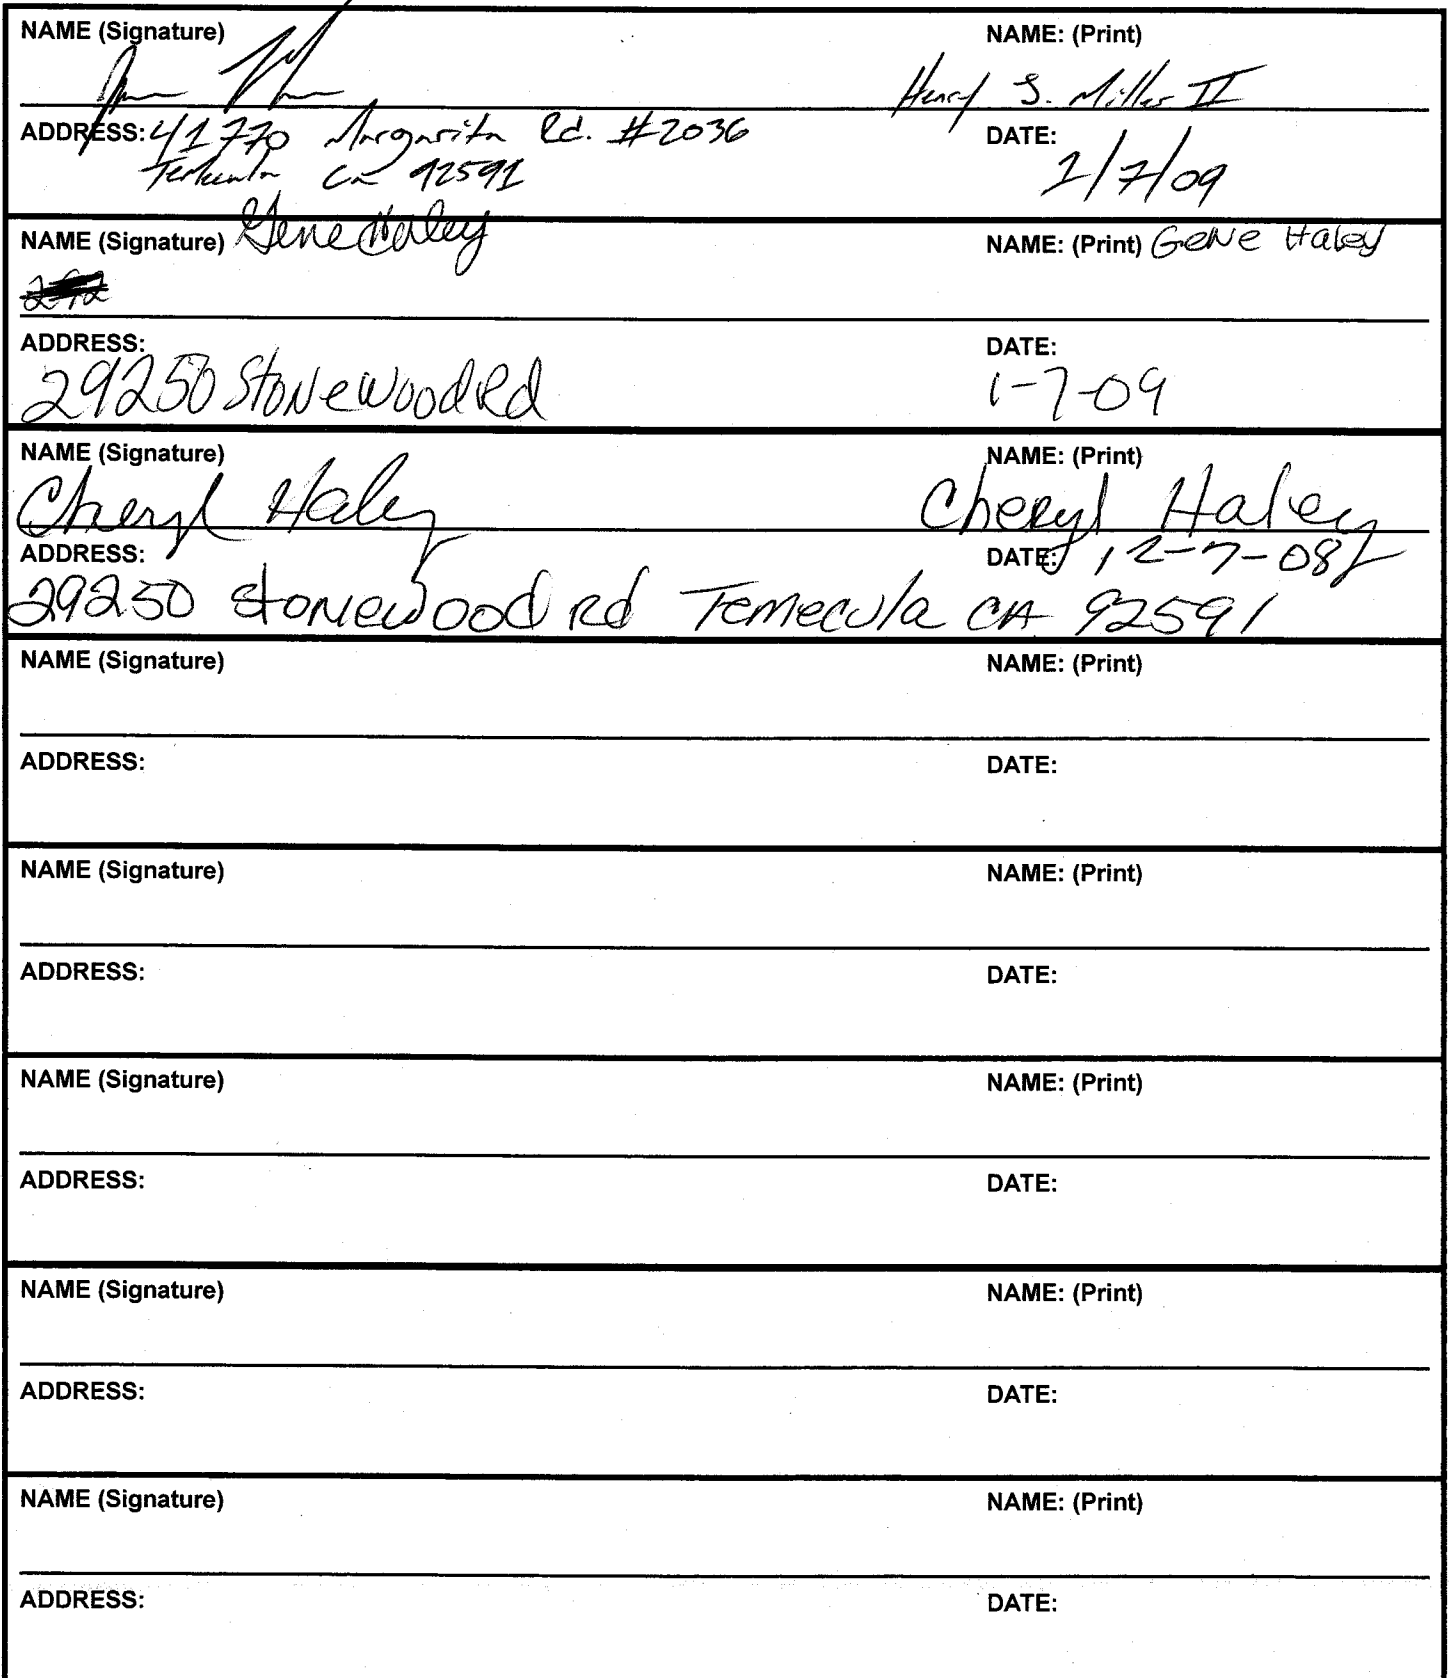 NAME (Signature) NAME: (Print)
Henry S. Miller II
ADDRESS: 41770 Margarita Rd. #2036 DATE:
Temecula Ca 92591 1/7/09
NAME (Signature) Gene Haley NAME: (Print) Gene Haley
ADDRESS: DATE:
29250 Stonewood Rd 1-7-09
NAME (Signature) NAME: (Print)
Cheryl Haley Cheryl Haley
ADDRESS: DATE: 12-7-08
29250 Stonewood Rd Temecula CA 92591
NAME (Signature) NAME: (Print)
ADDRESS: DATE:
NAME (Signature) NAME: (Print)
ADDRESS: DATE:
NAME (Signature) NAME: (Print)
ADDRESS: DATE:
NAME (Signature) NAME: (Print)
ADDRESS: DATE:
NAME (Signature) NAME: (Print)
ADDRESS: DATE: